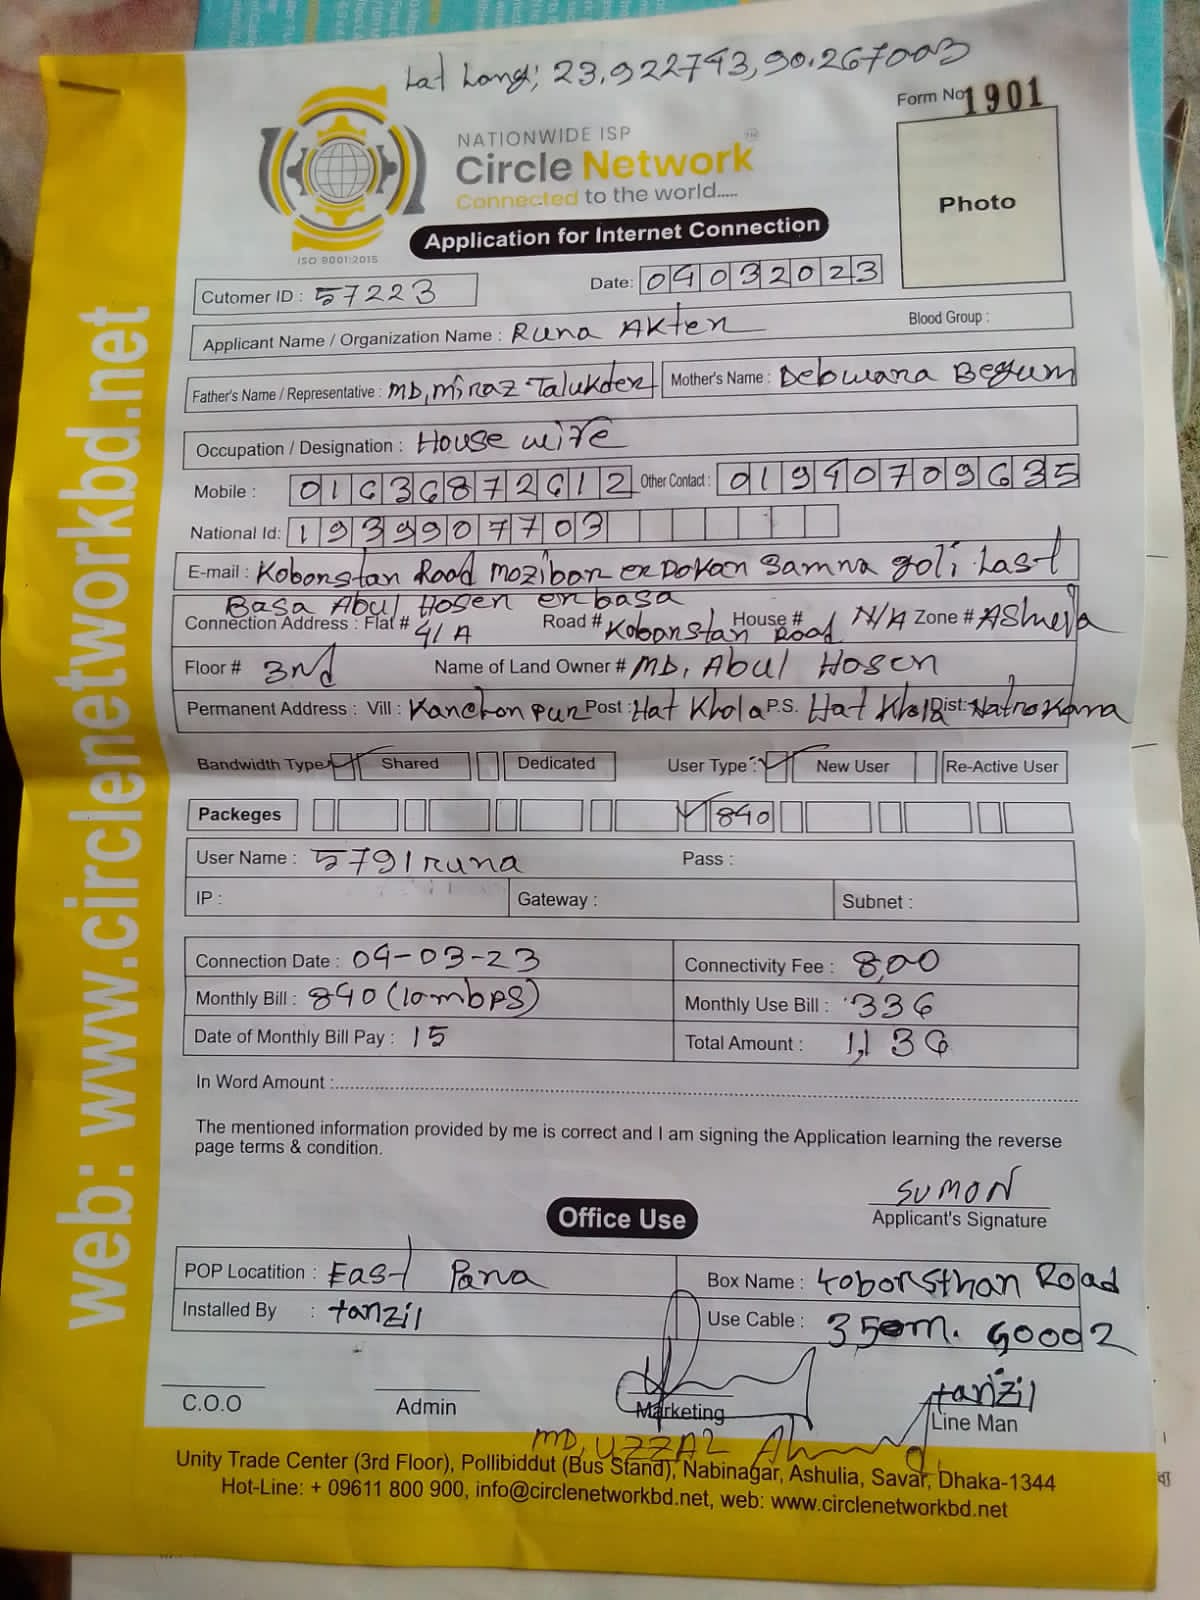 Lat Long; 23.922743,90.267003
Form No 1901
NATIONWIDE ISP
Circle Network
Connected to the world.....
ISO 9001:2015
Application for Internet Connection
Photo
Cutomer ID : 57223
Date: 04032023
Applicant Name / Organization Name : Runa Akter
Blood Group :
Father's Name / Representative : MD, Miraz Talukder
Mother's Name : Debwara Begum
Occupation / Designation : House wife
Mobile : 01636872612
Other Contact : 01940709635
National Id: 1939907703
E-mail : Kobonstan Road Moziban er Dokan Samna goli Last
Basa Abul Hosen er basa
Connection Address : Flat # 41A Road # Kobonstan Road House # N/A Zone # Ashulia
Floor # 3nd Name of Land Owner # MD, Abul Hosen
Permanent Address : Vill : Kanchon pur Post : Hat Khola P.S. Hat Khola Dist: Natrokona
Bandwidth Type : Shared Dedicated User Type : New User Re-Active User
Packeges 840
User Name : 5791runa Pass :
IP : Gateway : Subnet :
Connection Date : 04-03-23 Connectivity Fee : 8,00
Monthly Bill : 840 (10mbps) Monthly Use Bill : 336
Date of Monthly Bill Pay : 15 Total Amount : 1,136
In Word Amount :
The mentioned information provided by me is correct and I am signing the Application learning the reverse
page terms & condition.
SUMON
Applicant's Signature
Office Use
POP Locatition : East Para Box Name : Koborsthan Road
Installed By : tanzil Use Cable : 350m. 60002
tanzil
C.O.O Admin Marketing Line Man
MD, UZZAL
Unity Trade Center (3rd Floor), Pollibiddut (Bus Stand), Nabinagar, Ashulia, Savar, Dhaka-1344
Hot-Line: + 09611 800 900, info@circlenetworkbd.net, web: www.circlenetworkbd.net
web: www.circlenetworkbd.net